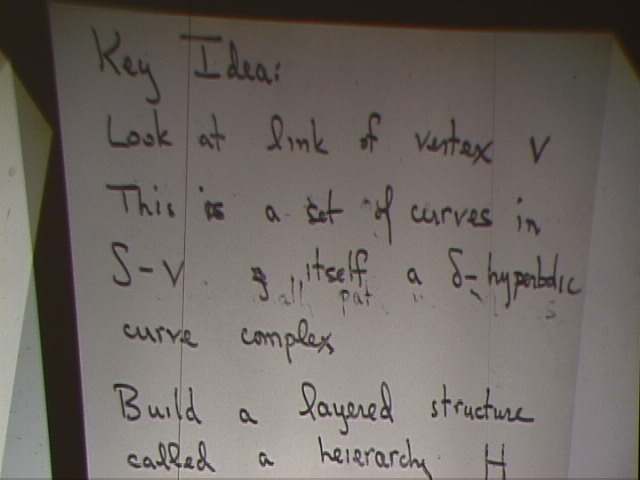 Key Idea:
Look at link of vertex V
This is a set of curves in
S-V itself a δ-hyperbolic
curve complex
Build a layered structure
called a heierarchy H